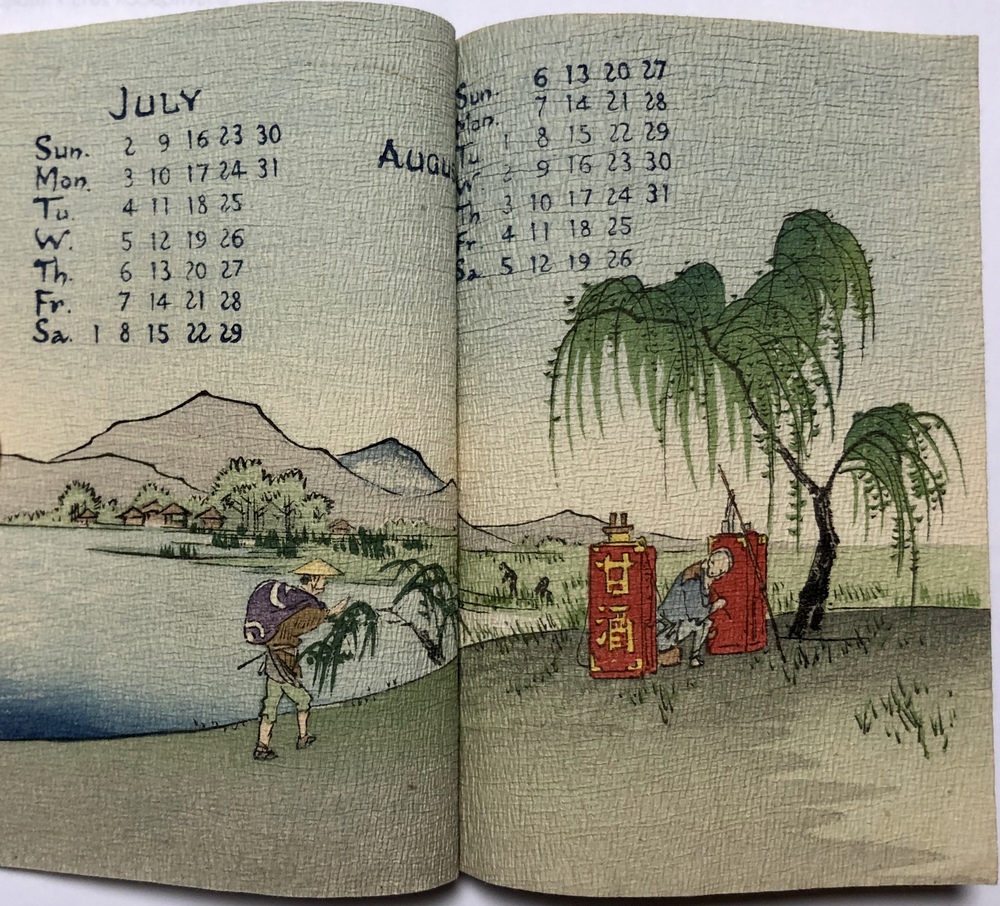 JULY
Sun. 2 9 16 23 30
Mon. 3 10 17 24 31
Tu. 4 11 18 25
W. 5 12 19 26
Th. 6 13 20 27
Fr. 7 14 21 28
Sa. 1 8 15 22 29
Augu
Sun. 6 13 20 27
Mon. 7 14 21 28
Tu 1 8 15 22 29
W. 2 9 16 23 30
Th 3 10 17 24 31
Fr. 4 11 18 25
Sa 5 12 19 26
甘酒